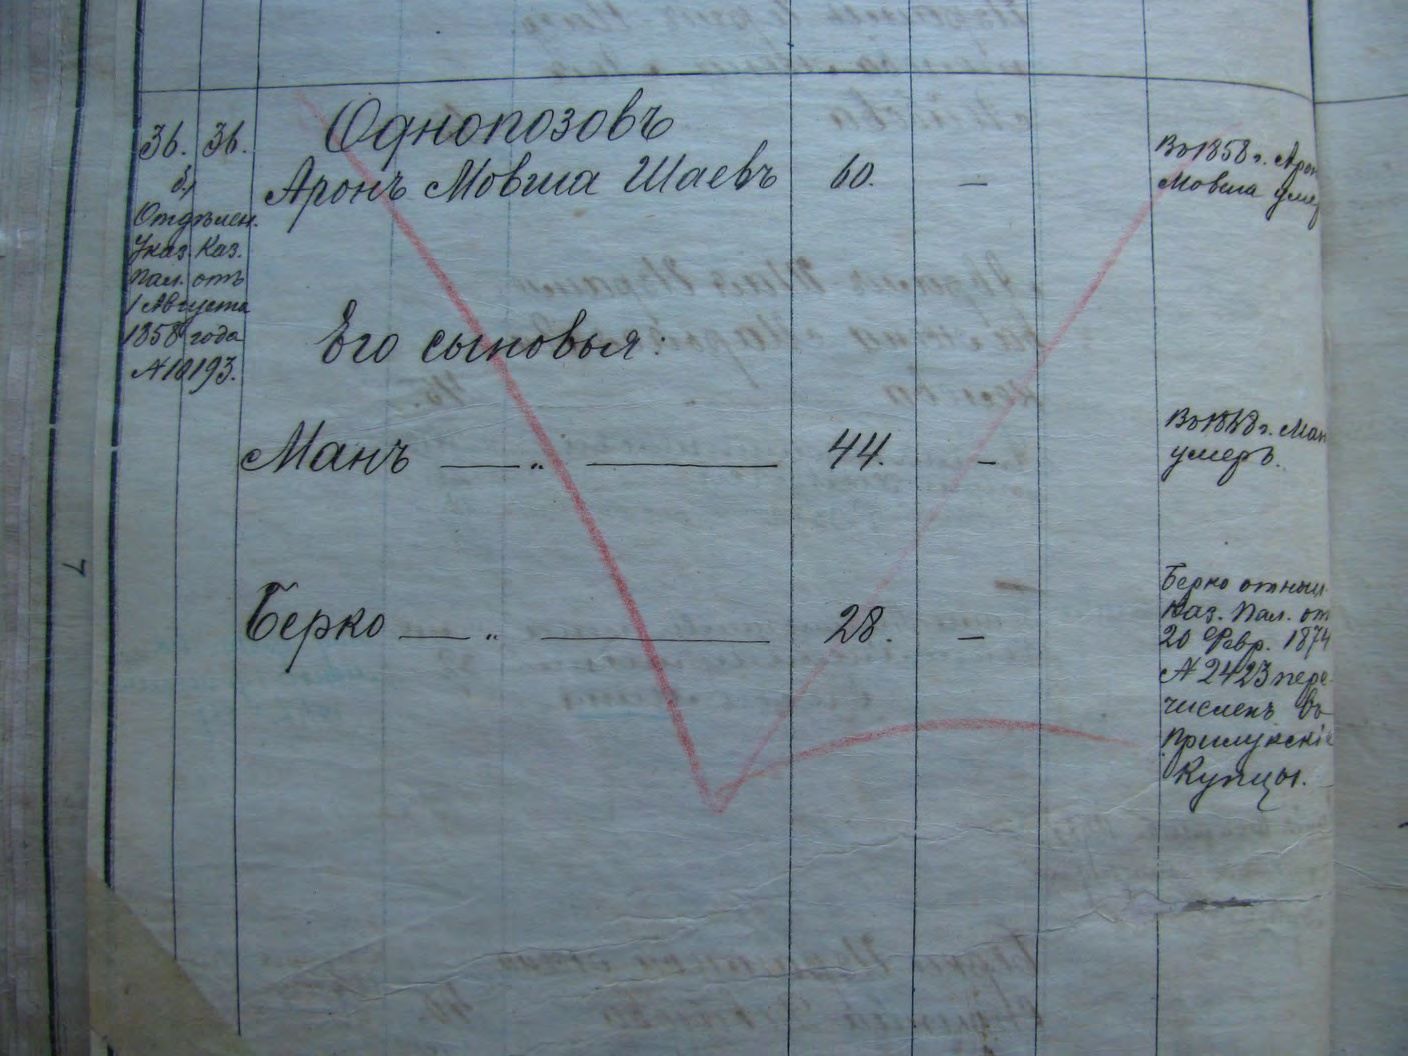 36. 36.
Однопозовъ
Аронъ Мовша Шаевъ 60. —
Въ 1858 г. Арон
Мовша умер
Отдѣлен.
Указ. Каз.
Пал. отъ
1 Августа
1858 года
№ 10193.
Его сыновья:
Манъ — „ — 44. —
г. Ман
умеръ.
Берко — „ — 28. —
Берко
Каз. Пал. от
20 Февр. 1874
№ 2423 пере-
численъ въ
Прилукскіе
Купцы.
7